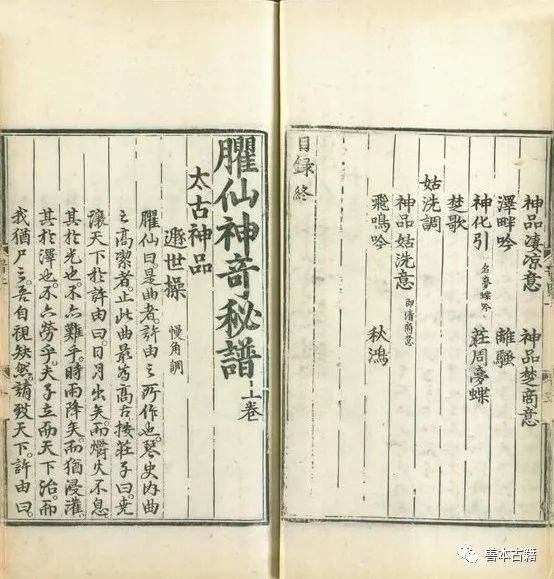 神品凄凉意 神品楚商意
澤畔吟 離騷
神化引 名夢蝶吟 莊周夢蝶
楚歌
姑洗調
神品姑洗意 即清商意
飛鳴吟 秋鴻
目録終
臞仙神奇秘譜上卷
太古神品
遯世操 慢角調
臞仙曰。是曲者。許由之所作也。琴史内曲
之高潔者。止此曲最為高古。按莊子曰。堯
讓天下於許由曰。日月出矣。而爝火不息。
其於光也。不亦難乎。時雨降矣。而猶浸灌。
其於澤也。不亦勞乎。夫子立而天下治。而
我猶尸之。吾自視缺然。請致天下。許由曰。
善本古籍